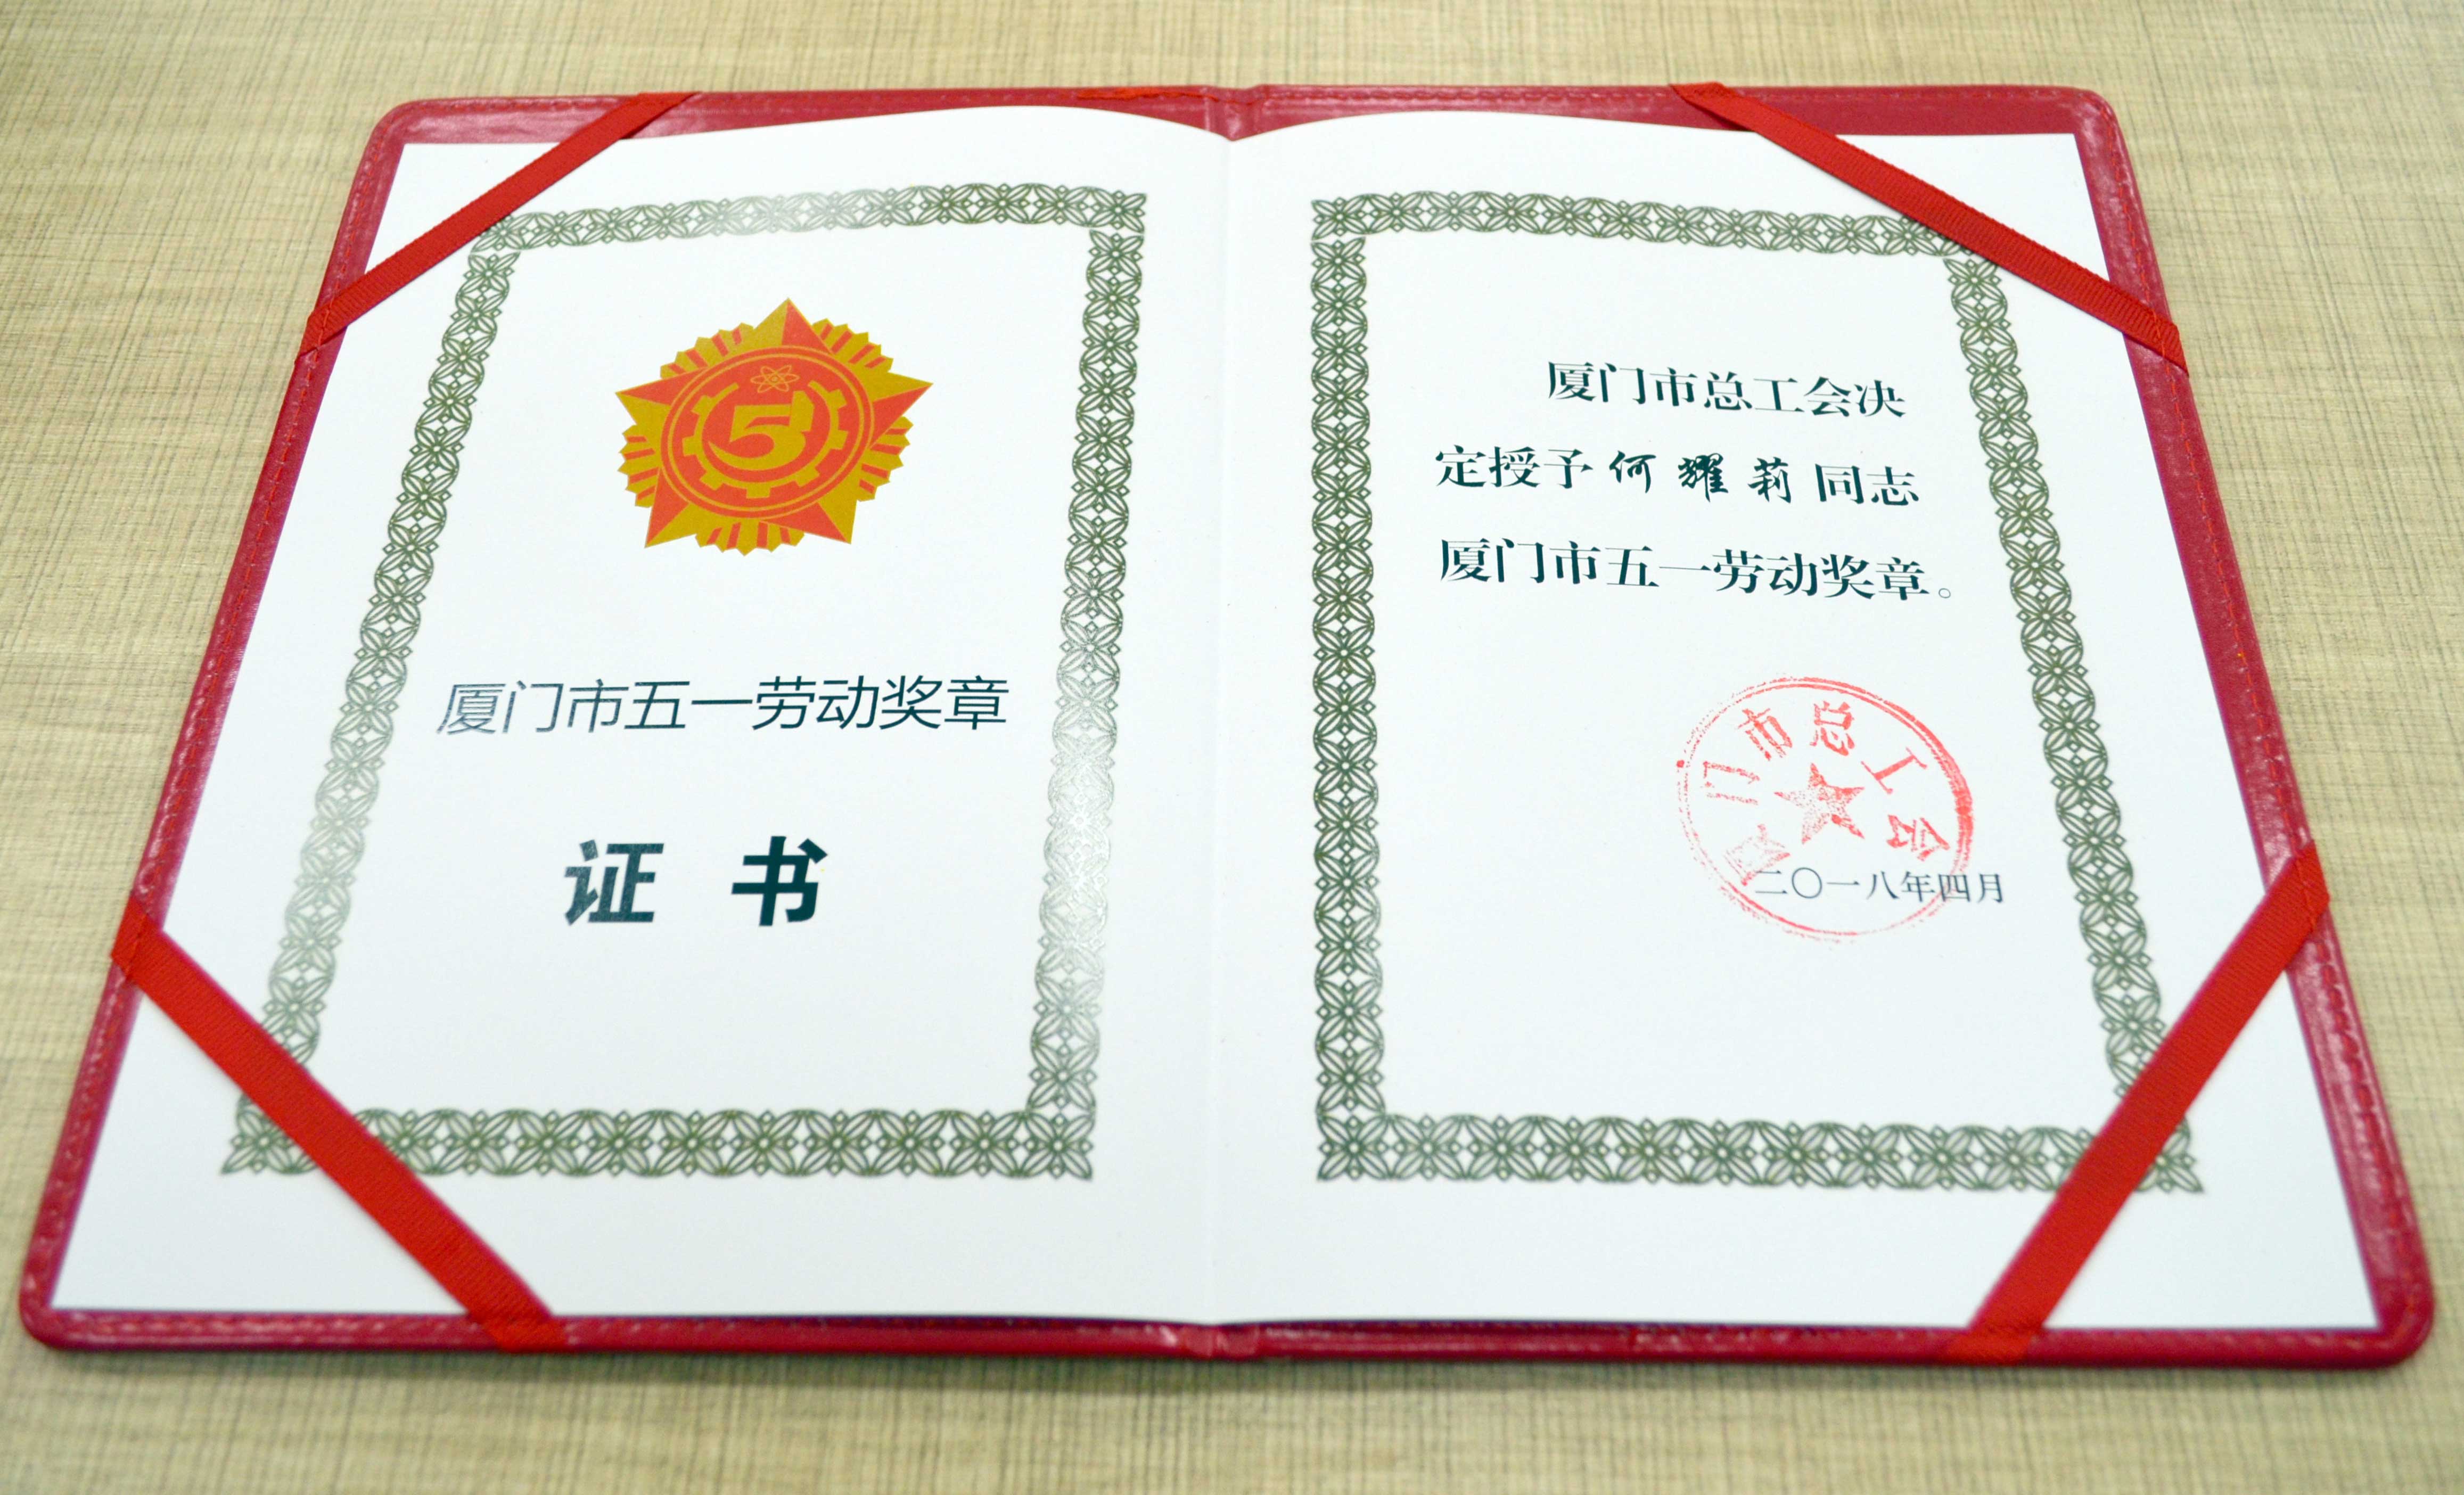 5
厦门市五一劳动奖章
证 书
厦门市总工会决
定授予 何耀莉 同志
厦门市五一劳动奖章。
厦门市总工会
二〇一八年四月